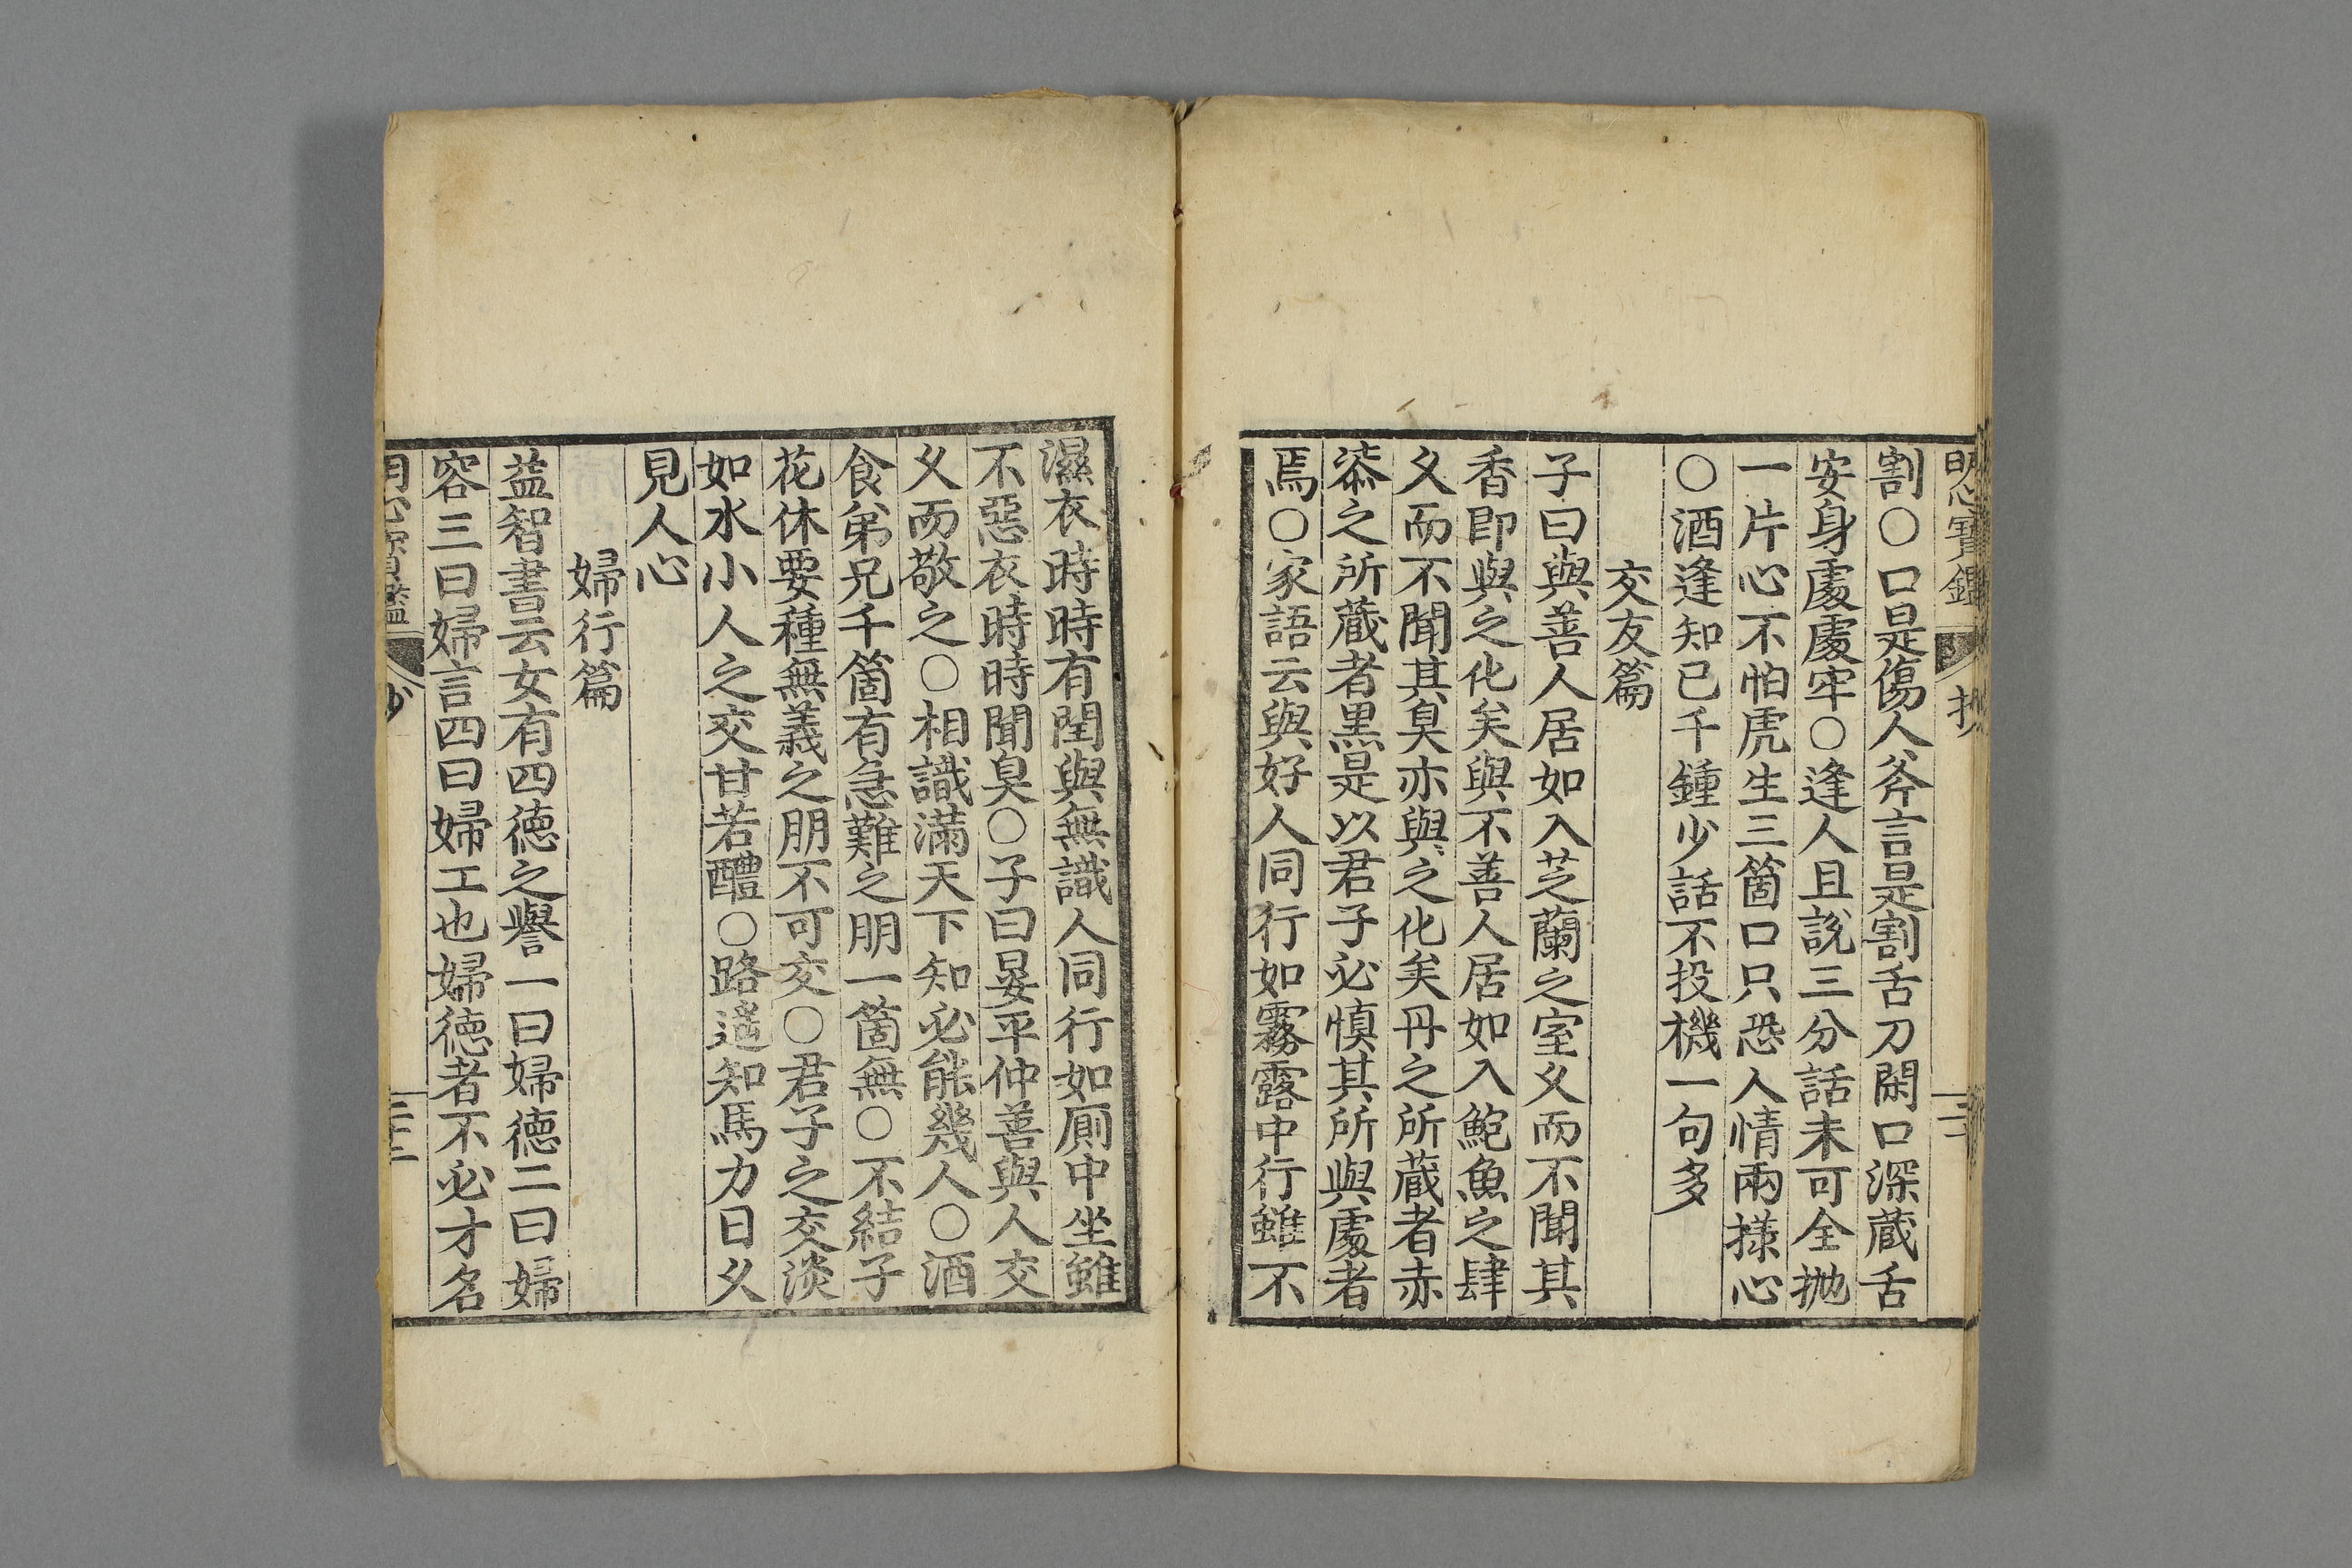 明心寶鑑 抄
割○口是傷人斧言是割舌刀閑口深藏舌
安身處處牢○逢人且說三分話未可全抛
一片心不怕虎生三箇口只恐人情兩㨾心
○酒逢知己千鍾少話不投機一句多
交友篇
子曰與善人居如入芝蘭之室久而不聞其
香即與之化矣與不善人居如入鮑魚之肆
久而不聞其臭亦與之化矣丹之所藏者赤
漆之所藏者黑是以君子必慎其所與處者
焉○家語云與好人同行如霧露中行雖不
濕衣時時有閏與無識人同行如厠中坐雖
不惡衣時時聞臭○子曰晏平仲善與人交
久而敬之○相識滿天下知必能幾人○酒
食弟兄千箇有急難之朋一箇無○不結子
花休要種無義之朋不可交○君子之交淡
如水小人之交甘若醴○路遙知馬力日久
見人心
婦行篇
益智書云女有四德之譽一曰婦德二曰婦
容三曰婦言四曰婦工也婦德者不必才名